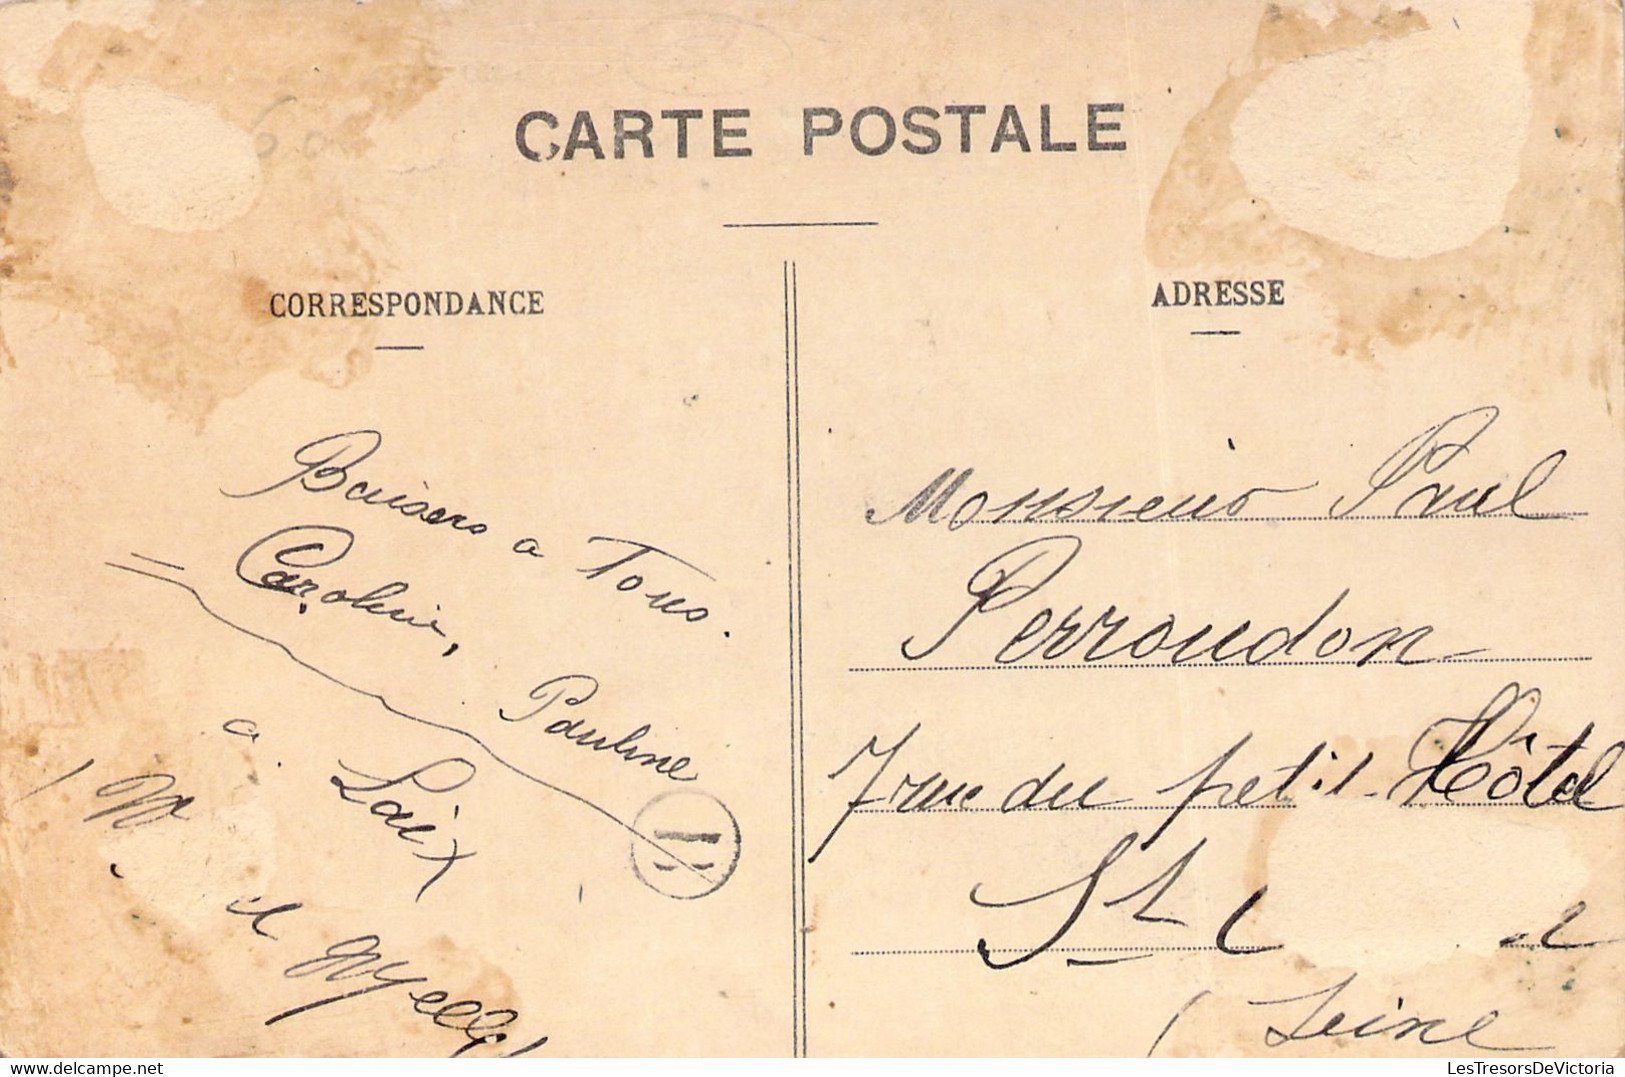 CARTE POSTALE
CORRESPONDANCE
ADRESSE
Baisers a Tous.
Caroline,
Pauline
a Laix
Monsieur Paul
Perroudon
7 rue du petit Hôtel
St
Seine
LesTresorsDeVictoria